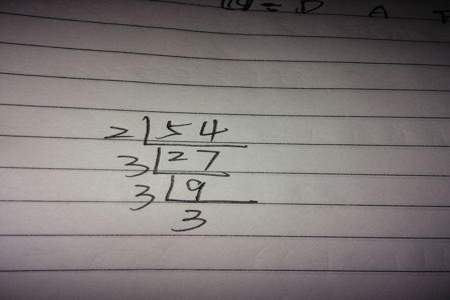 2 54
3 27
3 9
3